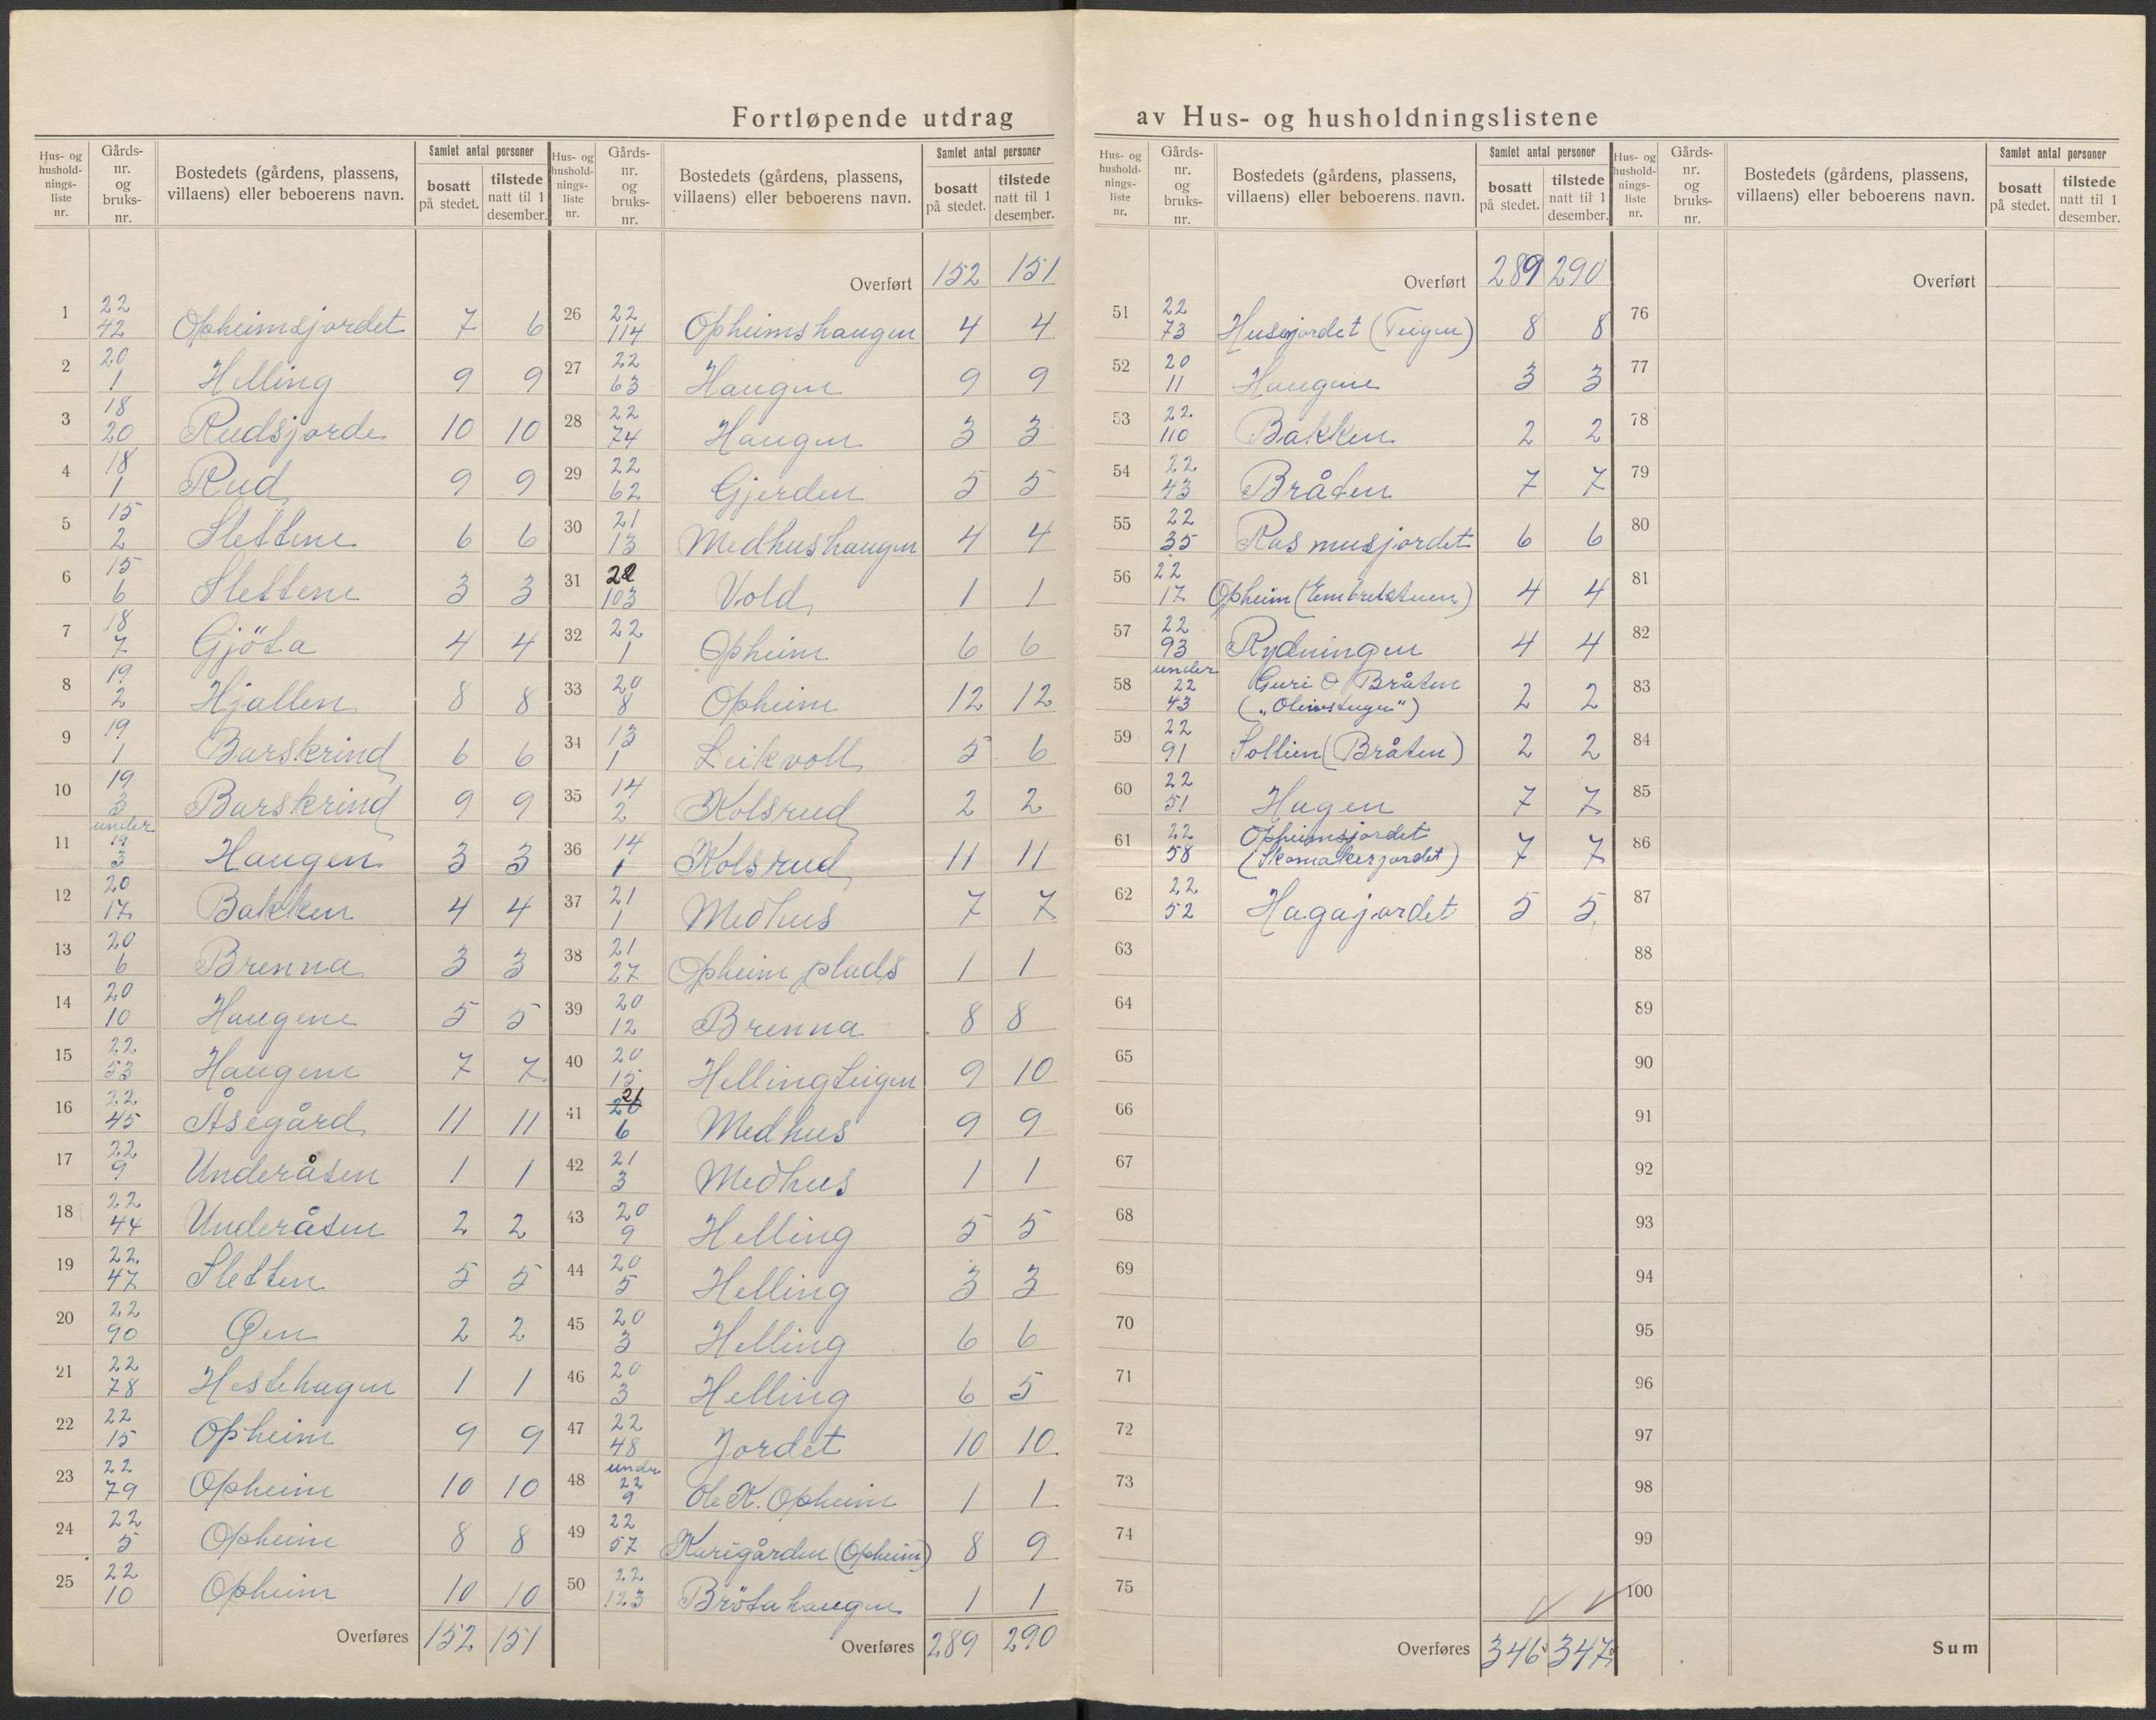 Fortløpende utdrag av Hus- og husholdningslistene
Hus- og hushold-nings-liste nr. Gårds-nr. og bruks-nr. Bostedets (gårdens, plassens, villaens) eller beboerens navn. Samlet antal personer bosatt på stedet. tilstede natt til 1 desember.
1 22 42 Opheimsjordet 7 6
2 20 1 Helling 9 9
3 18 20 Rudsjorde 10 10
4 18 1 Rud 9 9
5 15 2 Slettene 6 6
6 15 6 Slettene 3 3
7 18 7 Gjöta 4 4
8 19 2 Hjallen 8 8
9 19 1 Barskrind 6 6
10 19 3 Barskrind 9 9
11 under 19 3 Haugen 3 3
12 20 17 Bakken 4 4
13 20 6 Brenna 3 3
14 20 10 Haugene 5 5
15 22 53 Haugene 7 7
16 22 45 Åsegård 11 11
17 22 9 Underåsen 1 1
18 22 44 Underåsen 2 2
19 22 47 Sletten 5 5
20 22 90 Øen 2 2
21 22 78 Hestehagen 1 1
22 22 15 Opheim 9 9
23 22 79 Opheim 10 10
24 22 5 Opheim 8 8
25 22 10 Opheim 10 10
Overføres 152 151
Hus- og hushold-nings-liste nr. Gårds-nr. og bruks-nr. Bostedets (gårdens, plassens, villaens) eller beboerens navn. Samlet antal personer bosatt på stedet. tilstede natt til 1 desember.
Overført 152 151
26 22 114 Opheimshaugen 4 4
27 22 63 Haugen 9 9
28 22 74 Haugen 3 3
29 22 62 Gjerden 5 5
30 21 13 Medhushaugen 4 4
31 22 103 Vold 1 1
32 22 1 Opheim 6 6
33 20 8 Opheim 12 12
34 13 1 Leikvoll 5 6
35 14 2 Kolsrud 2 2
36 14 1 Kolsrud 11 11
37 21 1 Medhus 7 7
38 21 27 Opheim plads 1 1
39 20 12 Brenna 8 8
40 20 15 Hellingteigen 9 10
41 20 21 6 Medhus 9 9
42 21 3 Medhus 1 1
43 20 9 Helling 5 5
44 20 5 Helling 3 3
45 20 3 Helling 6 6
46 20 3 Helling 6 5
47 22 48 Jordet 10 10
48 under 22 9 Ole K. Opheim 1 1
49 22 57 Karigården (Opheim) 8 9
50 22 123 Brötahaugen 1 1
Overføres 289 290
Hus- og hushold-nings-liste nr. Gårds-nr. og bruks-nr. Bostedets (gårdens, plassens, villaens) eller beboerens. navn. Samlet antal personer bosatt på stedet. tilstede natt til 1 desember.
Overført 289 290
51 22 73 Husejordet (Teigen) 8 8
52 20 11 Haugene 3 3
53 22 110 Bakken 2 2
54 22 43 Bråten 7 7
55 22 35 Rasmusjordet 6 6
56 22 17 Opheim (Embretstuen) 4 4
57 22 93 Rydningen 4 4
58 under 22 43 Guri O Bråten 2 2
59 22 91 Sollien (Bråten) 2 2
60 22 51 Hagen 7 7
61 22 58 Opheimsjordet
(Skomakerjordet) 7 7
62 22 52 Hagajordet 5 5
63
64
65
66
67
68
69
70
71
72
73
74
75
Overføres 346 347
Hus- og hushold-nings-liste nr. Gårds-nr. og bruks-nr. Bostedets (gårdens, plassens, villaens) eller beboerens navn. Samlet antal personer bosatt på stedet. tilstede natt til 1 desember.
Overført
76
77
78
79
80
81
82
83
84
85
86
87
88
89
90
91
92
93
94
95
96
97
98
99
100
Sum